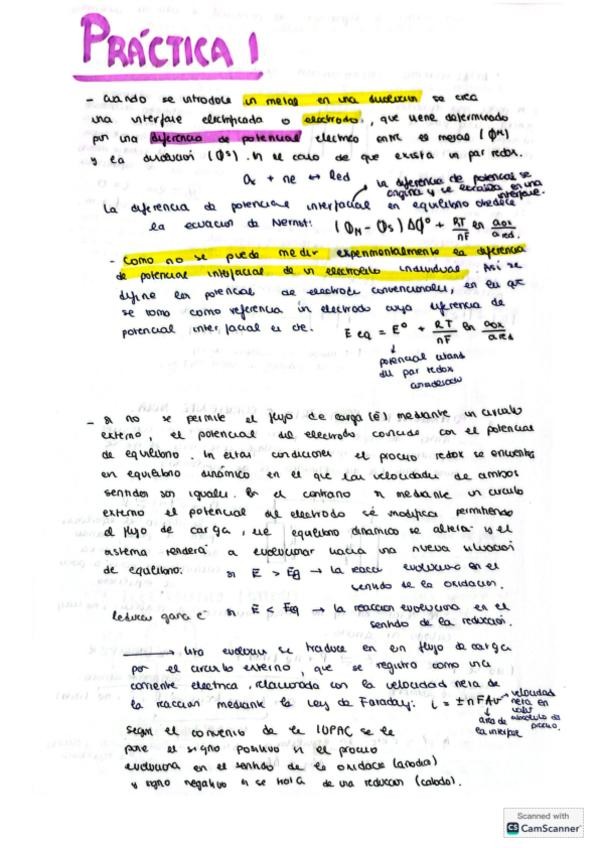 PRÁCTICA 1
- Cuando se introduce un metal en una disolucion se crea
una interfase electrificada o electrodo, que viene determinado
por una diferencia de potencial electrico entre el metal (ΦM)
y la disolucion (ΦS). En el caso de que exista un par redox.
Ox + ne ↔ Red
La diferencia de potencial se
origina y se localiza en una
interfase.
La diferencia de potencial interfacial en equilibrio obedece
la ecuacion de Nernst: (ΦM - ΦS) ΔΦ° + RT/nF ln aox/ared.
- Como no se puede medir experimentalmente la diferencia
de potencial interfacial de un electrodo individual. Asi se
define los potencial de electrodo convencionales, en los que
se toma como referencia un electrodo cuya diferencia de
potencial interfacial es cte. E eq = E° + RT/nF ln aox/ared
potencial
del par redox
- Si no se permite el flujo de carga (ē) mediante un circuito
externo, el potencial del electrodo coincide con el potencial
de equilibrio. En estas condiciones el proceso redox se encuentra
en equilibrio dinámico en el que las velocidades de ambos
sentidos son iguales. En el contrario si mediante un circuito
externo el potencial del electrodo se modifica permitiendo
el flujo de carga, ese equilibrio dinamico se altera y el
sistema tenderá a evolucionar hacia una nueva situacion
de equilibrio: si E > Eq → la reacc evoluciona en el
sentido de la oxidacion.
reduce gana e⁻ si E < Eq → la reaccion evoluciona en el
sentido de la reduccion.
→ Esta evolucion se traduce en un flujo de carga
por el circuito externo, que se registra como una
corriente electrica, relacionada con la velocidad neta de
la reaccion mediante la Ley de Faraday: i = ± nFAv
velocidad
neta en
valor
absoluto del
proceso.
area de
la interfase
Segun el convenio de la IUPAC se le
pone el signo positivo si el proceso
evoluciona en el sentido de la oxidacion (anodica)
y signo negativo si se trata de una reduccion (catodo).
Scanned with
CS CamScanner